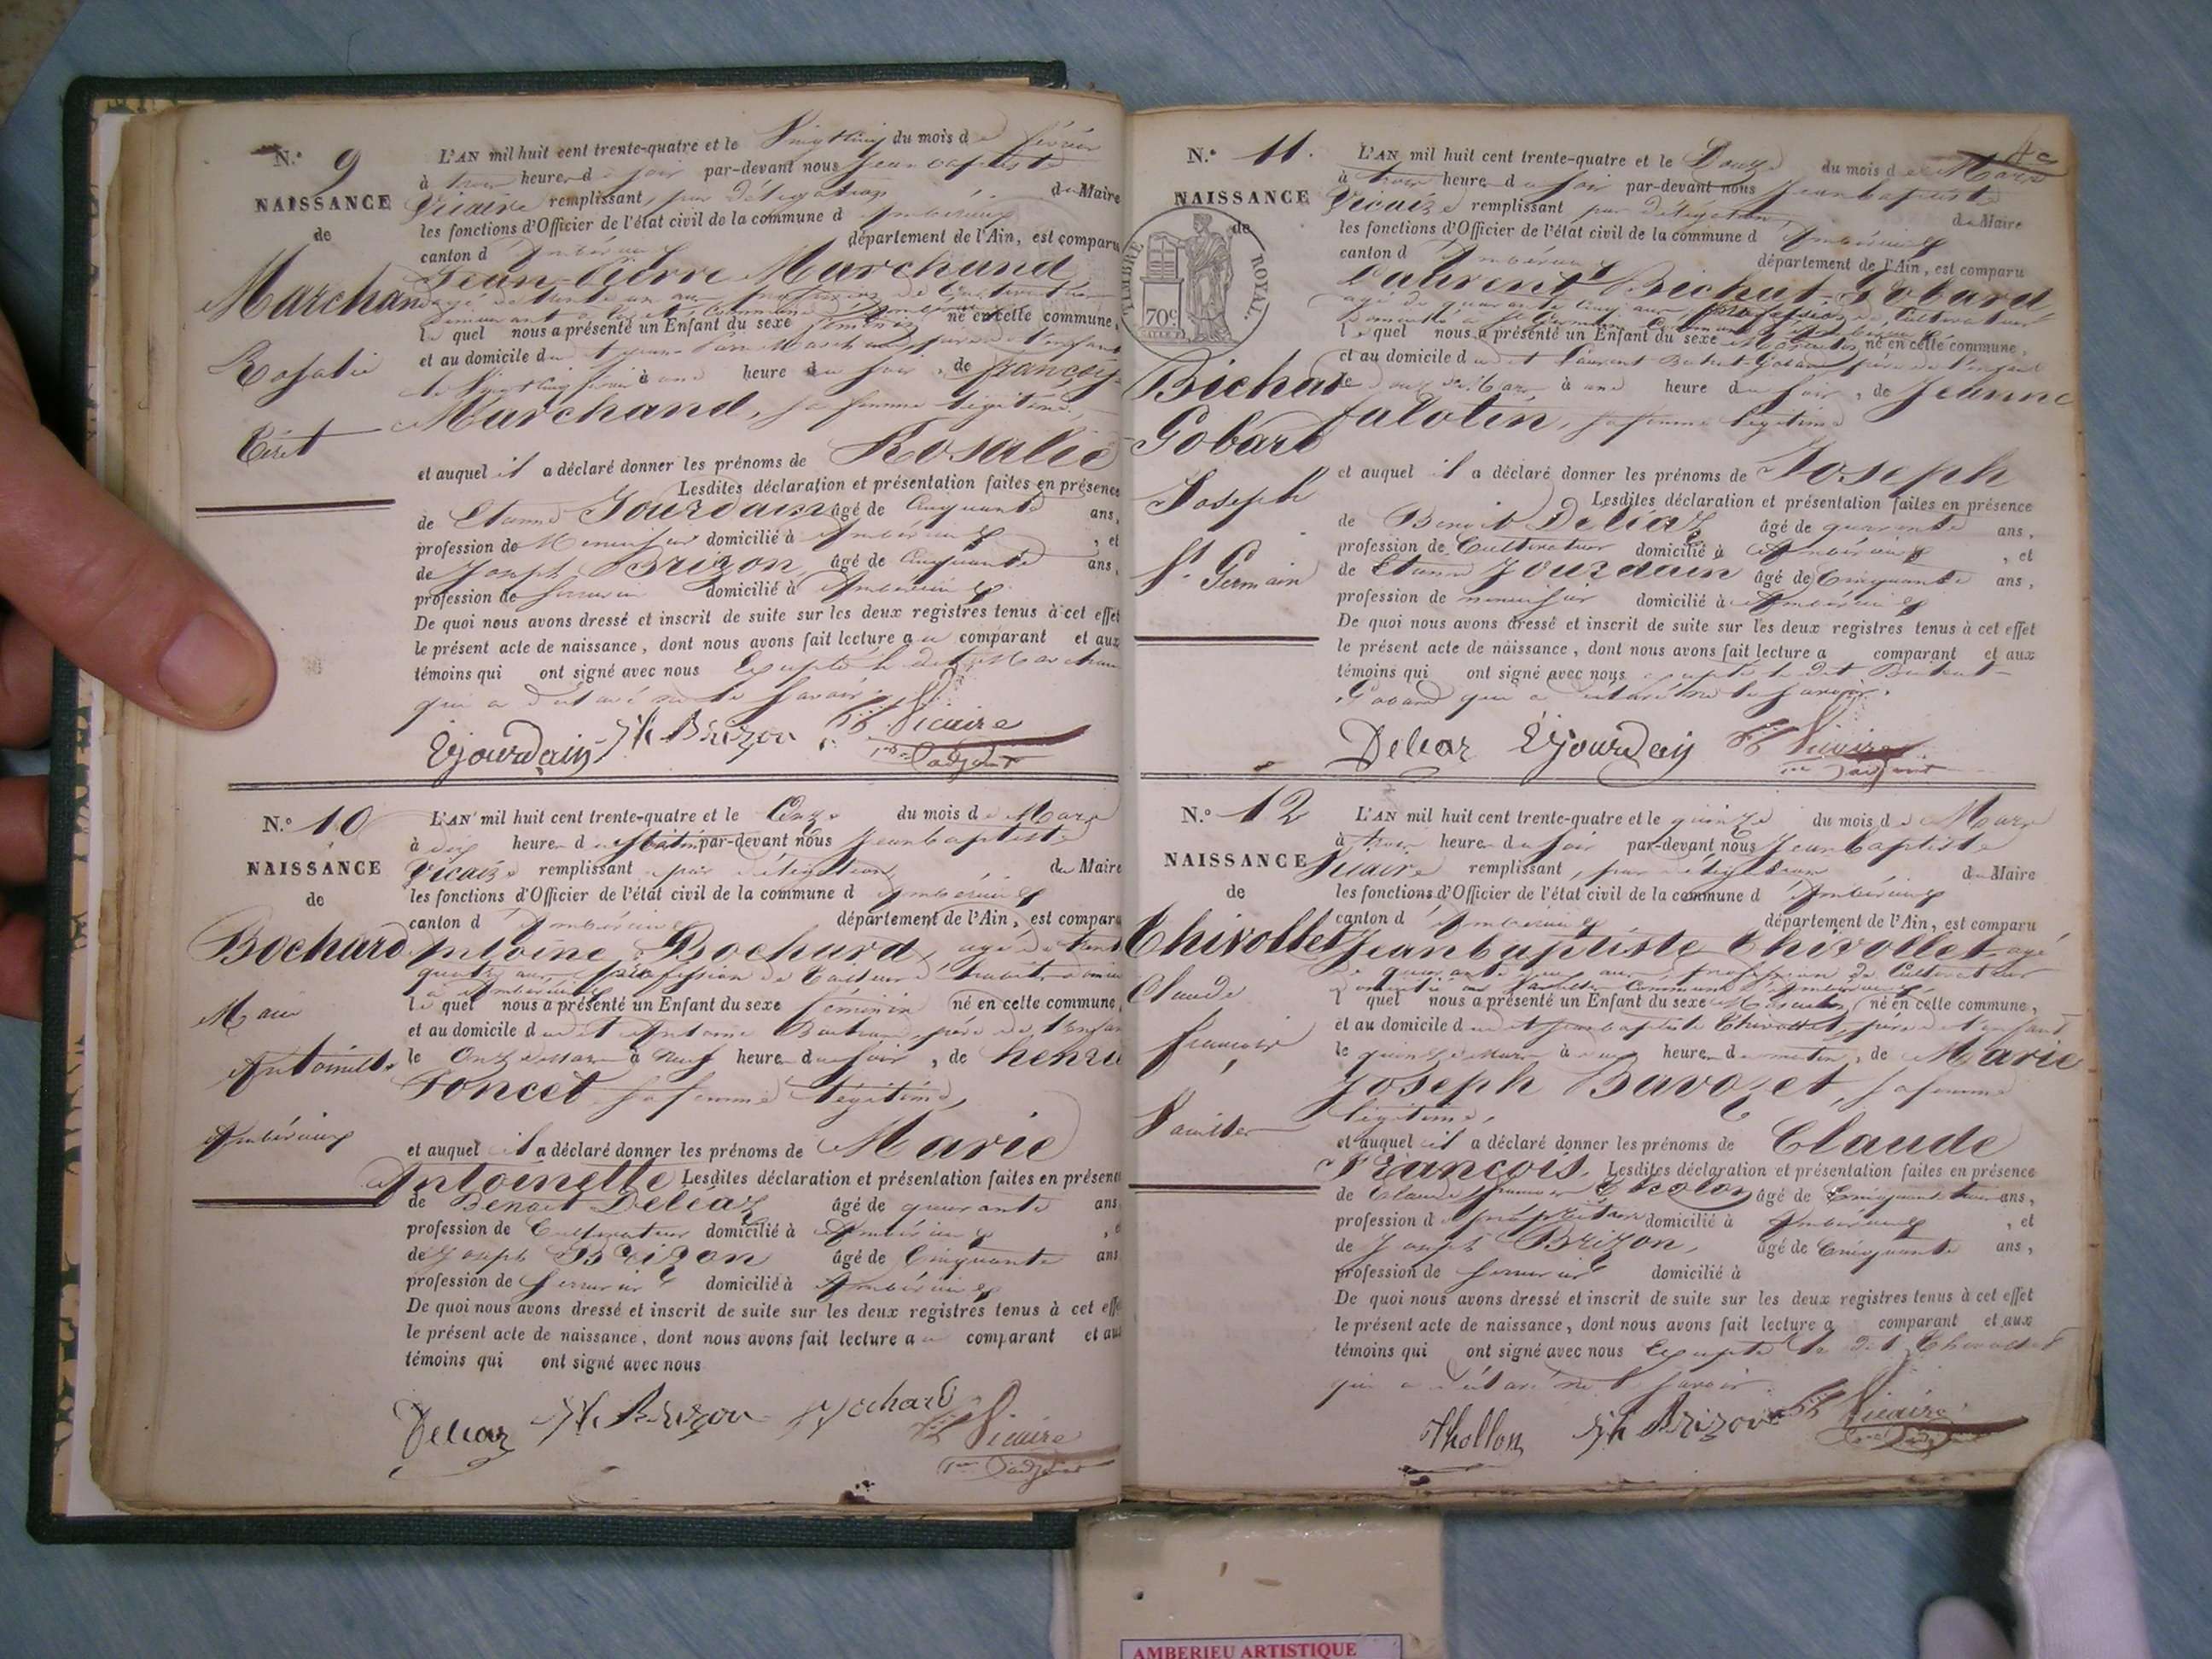 N.o 9
NAISSANCE
de
Marchand
Rosalie
Tiret
L'AN mil huit cent trente-quatre et le Vingt cinq du mois de février
à trois heures du soir par-devant nous Jean baptiste
Vicaire remplissant, par délégation du Maire
les fonctions d'Officier de l'état civil de la commune d'Ambérieux
canton d'Ambérieux département de l'Ain, est comparu
Jean-Pierre Marchand
agé de trente un ans profession de Cultivateur
demeurant à Tiret, Commune d'Ambérieux
le quel nous a présenté un Enfant du sexe féminin né en cette commune,
et au domicile du dit Jean-Pierre Marchand, père de l'enfant
le Vingt cinq février à une heure du soir, de françoise
Marchand, sa femme légitime,
et auquel il a déclaré donner les prénoms de Rosalie
Lesdites déclaration et présentation faites en présence
de Etienne Jourdain âgé de Cinquante ans,
profession de domicilié à Ambérieux, et
de Joseph Brizon, âgé de Cinquante ans,
profession de serrurier domicilié à Ambérieux
De quoi nous avons dressé et inscrit de suite sur les deux registres tenus à cet effet
le présent acte de naissance, dont nous avons fait lecture au comparant et aux
témoins qui ont signé avec nous Excepté le dit Marchand
qui a déclaré ne le savoir.
Ejourdain Jh Brizon JB Vicaire
1er adjoint
N.o 10
NAISSANCE
de
Bochard
Marie
Antoinette
Ambérieux
L'AN mil huit cent trente-quatre et le Onze du mois de Mars
à dix heures du Matin par-devant nous Jean baptiste
Vicaire remplissant par délégation du Maire
les fonctions d'Officier de l'état civil de la commune d'Ambérieux
canton d'Ambérieux département de l'Ain, est comparu
Antoine Bochard, agé de trente
quatre ans, profession de Tailleur d'habits,
à Ambérieux
le quel nous a présenté un Enfant du sexe féminin né en cette commune,
et au domicile du dit Antoine Bochard, père de l'Enfant
le Onze Mars à Neuf heures du soir, de henrie
Poncet sa femme légitime,
et auquel il a déclaré donner les prénoms de Marie
Antoinette Lesdites déclaration et présentation faites en présence
de Benoit Deléaz âgé de quarante ans
profession de Cultivateur domicilié à Ambérieux, et
de Joseph Brizon âgé de Cinquante ans
profession de serrurier domicilié à Ambérieux
De quoi nous avons dressé et inscrit de suite sur les deux registres tenus à cet effet
le présent acte de naissance, dont nous avons fait lecture au comparant et aux
témoins qui ont signé avec nous
Deleaz Jh Brizon Bochard JB Vicaire
1er adjoint
N.o 11.
NAISSANCE
de
TIMBRE ROYAL.
70c
Bichat
Gobard
Joseph
St Germain
L'AN mil huit cent trente-quatre et le Douze du mois de Mars
à trois heures du soir par-devant nous Jean baptiste
Vicaire remplissant par délégation, du Maire
les fonctions d'Officier de l'état civil de la commune d'Ambérieux
canton d'Ambérieux département de l'Ain, est comparu
Laurent Bichat-Gobard
agé de quarante cinq ans, profession de Cultivateur
domicilié à St Germain Commune d'Ambérieux
le quel nous a présenté un Enfant du sexe Masculin, né en cette commune,
et au domicile du dit Laurent Bichat-Gobard père de l'enfant
le douze Mars à une heure du soir, de Jeanne
Jalotin, sa femme légitime
et auquel il a déclaré donner les prénoms de Joseph
Lesdites déclaration et présentation faites en présence
de Benoit Deléaz âgé de quarante ans,
profession de Cultivateur domicilié à Ambérieux, et
de Etienne Jourdain âgé de Cinquante ans,
profession de domicilié à Ambérieux
De quoi nous avons dressé et inscrit de suite sur les deux registres tenus à cet effet
le présent acte de naissance, dont nous avons fait lecture a comparant et aux
témoins qui ont signé avec nous excepté le dit Bichat-
Gobard qui a déclaré ne le savoir.
Deleaz Ejourdain JB Vicaire
1er adjoint
N.o 12
NAISSANCE
de
Chivollet
Claude
françois
Vareilles
L'AN mil huit cent trente-quatre et le quinze du mois de Mars
à trois heures du soir par-devant nous Jean baptiste
Vicaire remplissant, par délégation du Maire
les fonctions d'Officier de l'état civil de la commune d'Ambérieux
canton d'Ambérieux département de l'Ain, est comparu
Jean baptiste Chivollet agé
de quarante ans, profession de Cultivateur
domicilié Commune d'Ambérieux
l quel nous a présenté un Enfant du sexe Masculin, né en cette commune,
et au domicile du dit Jean baptiste Chivollet, père de l'enfant
le quinze Mars à heures du matin, de Marie
Joseph Bavozet, sa femme
légitime,
et auquel il a déclaré donner les prénoms de Claude
François, Lesdites déclaration et présentation faites en présence
de Claude françois Thollon âgé de Cinquante trois ans,
profession de propriétaire domicilié à Ambérieux, et
de Joseph Brizon, âgé de Cinquante ans,
profession de serrurier domicilié à
De quoi nous avons dressé et inscrit de suite sur les deux registres tenus à cet effet
le présent acte de naissance, dont nous avons fait lecture a comparant et aux
témoins qui ont signé avec nous Excepté le dit Chivollet
qui a déclaré ne le savoir.
Thollon Jh Brizon JB Vicaire
1er adjoint
AMBERIEU ARTISTIQUE